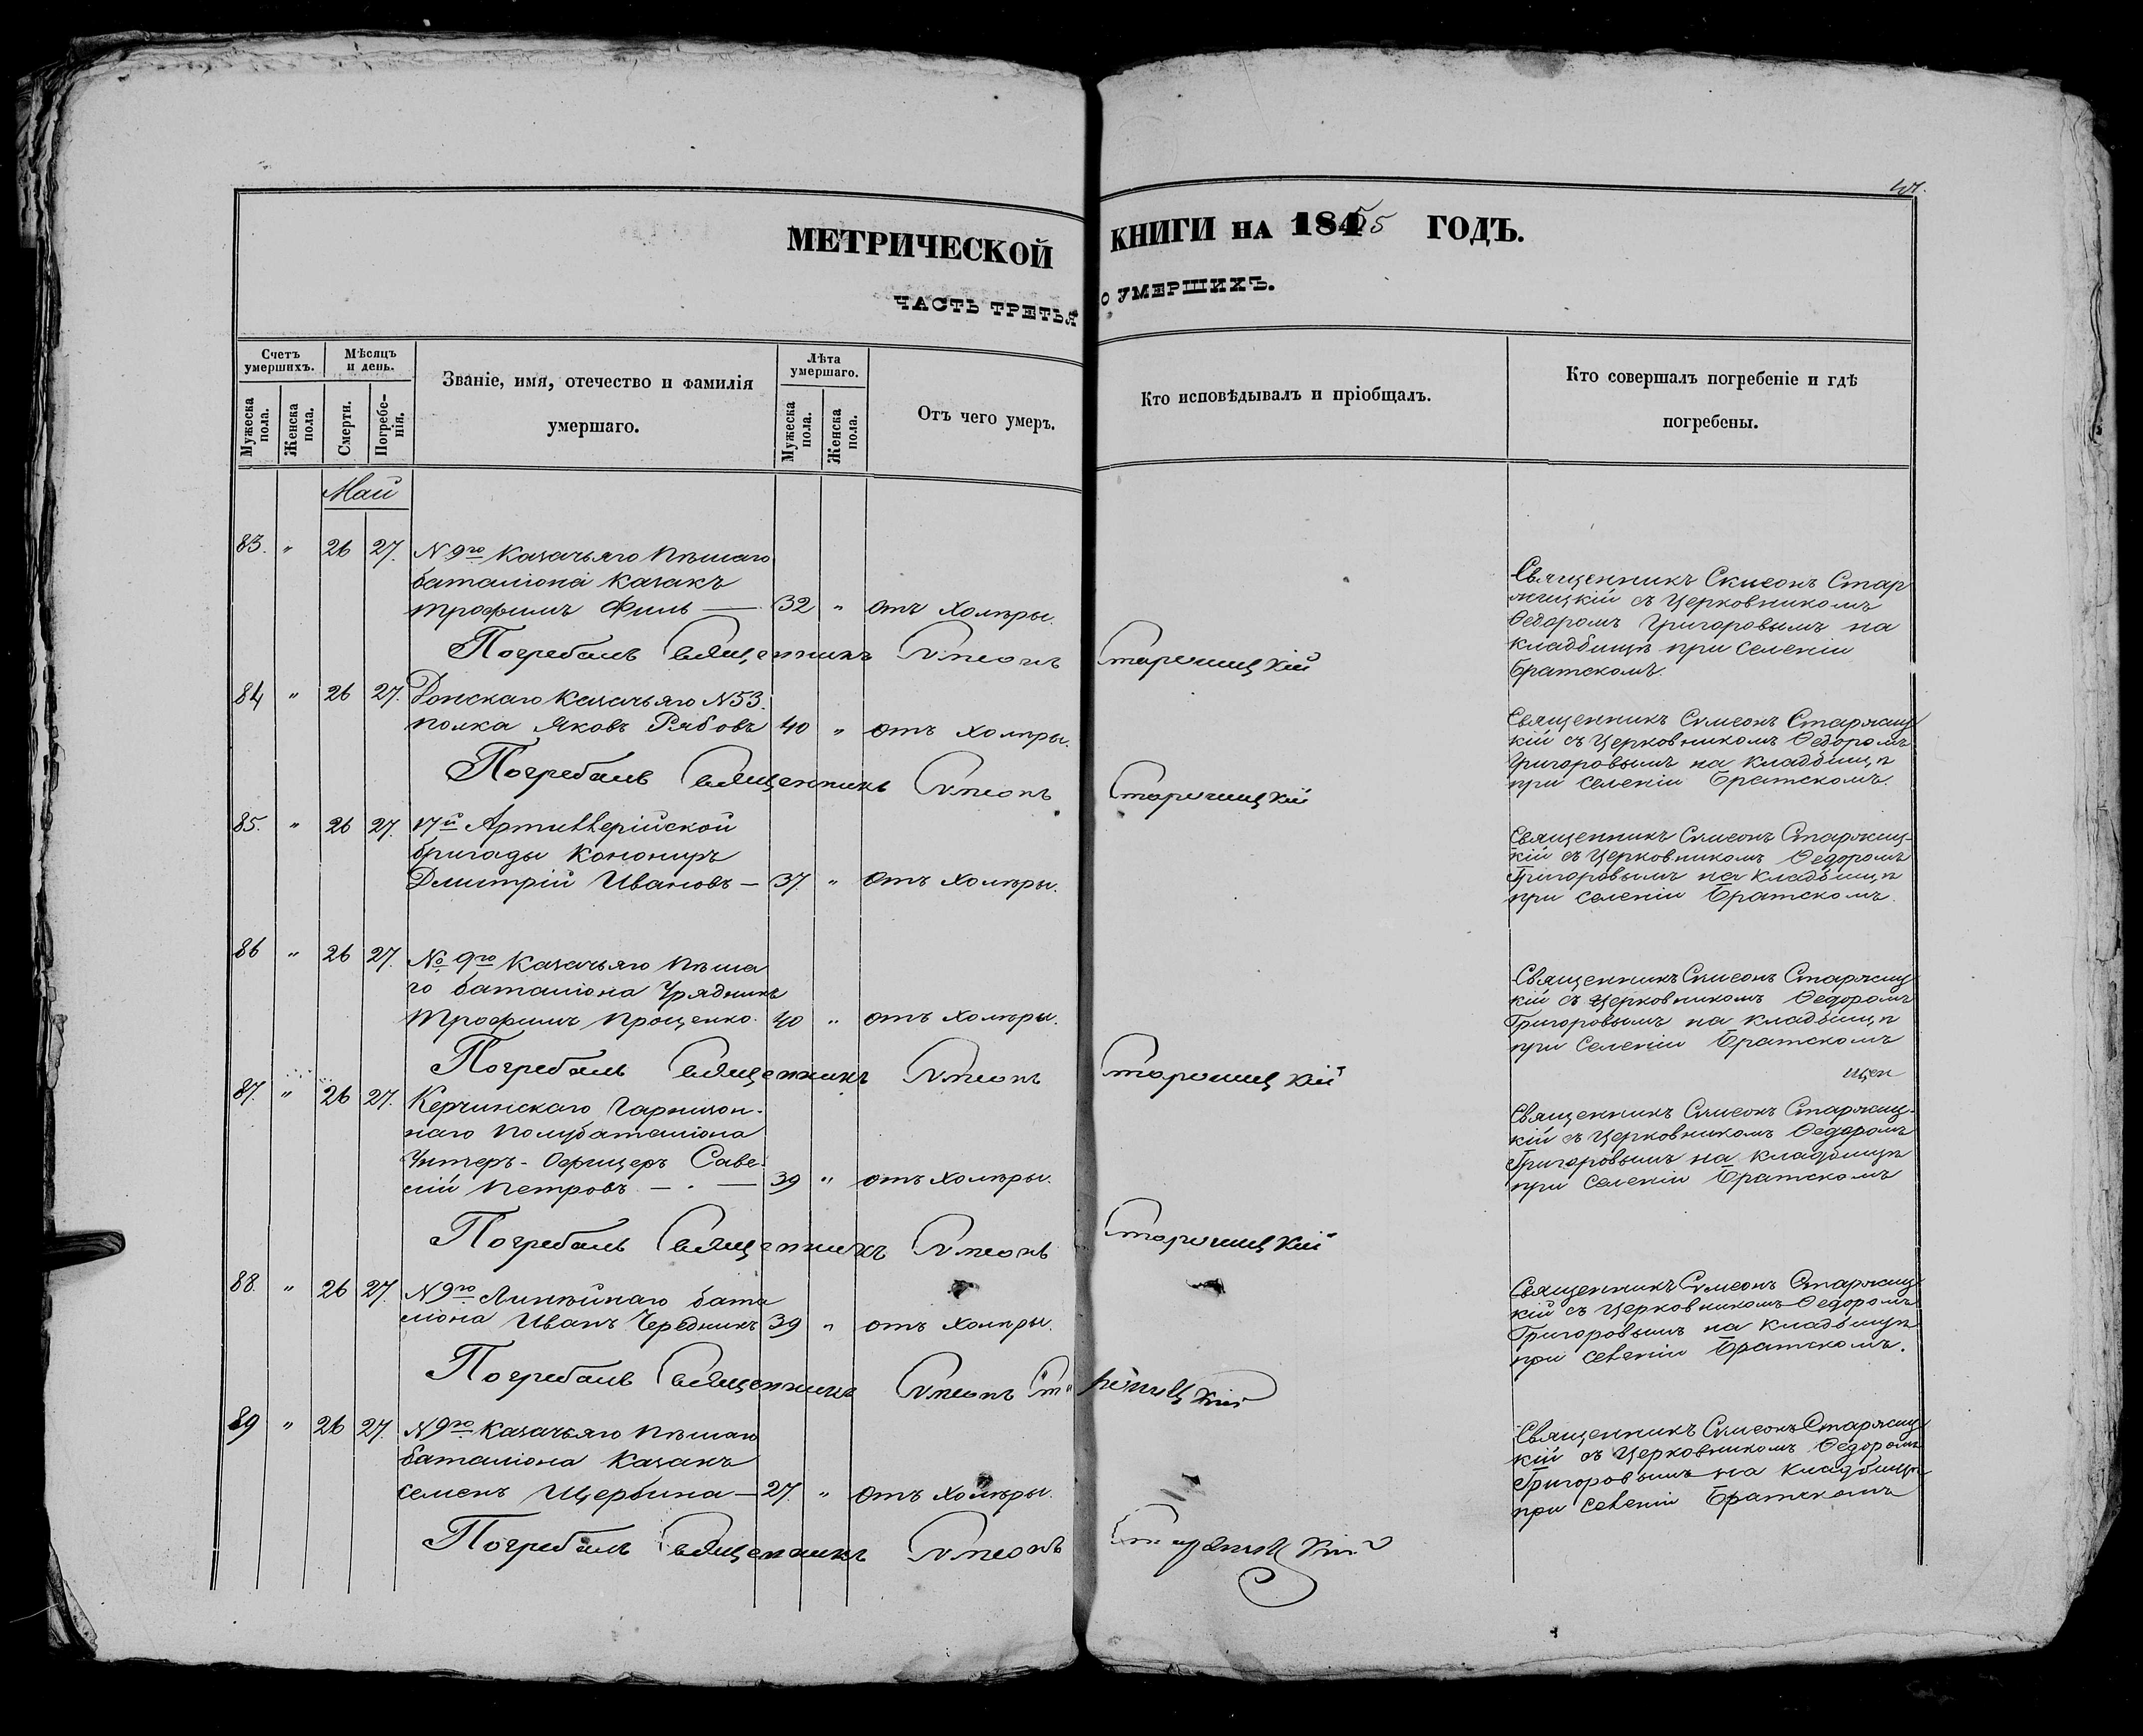 МЕТРИЧЕСКОЙ КНИГИ НА 1855 ГОДЪ.
ЧАСТЬ ТРЕТЬЯ О УМЕРШИХЪ.
Счетъ умершихъ.
Мужеска пола.
Женска пола.
Мѣсяцъ и день.
Смерти.
Погребенія.
Званіе, имя, отечество и фамилія
умершаго.
Лѣта умершаго.
Мужеска пола.
Женска пола.
Отъ чего умеръ.
Кто исповѣдывалъ и пріобщалъ.
Кто совершалъ погребеніе и гдѣ
погребены.
Май
83. " 26 27. N 9го Казачьяго пѣшаго
баталіона казакъ
Трофимъ Филь — 32 " отъ холѣры.
Священникъ Симеонъ Стар
жицкій съ Церковникомъ
Ѳедоромъ Григоровымъ на
кладбищѣ при селеніи
Братскомъ.
Погребалъ Священникъ Симеонъ Старжицкій
84 " 26 27. Донскаго Казачьяго N 53.
полка Яковъ Рябовъ 40 " отъ холѣры.
Священникъ Симеонъ Старжиц
кій съ Церковникомъ Ѳедоромъ
Григоровымъ на кладбищѣ
при селеніи Братскомъ.
Погребалъ Священникъ Симеонъ Старжицкій
85. " 26 27. 17й Артиллерійской
бригады Канониръ
Дмитрій Ивановъ — 37. " отъ холѣры.
Священникъ Симеонъ Старжиц-
кій съ Церковникомъ Ѳедоромъ
Григоровымъ на кладбищѣ
при селеніи Братскомъ.
86 " 26 27. № 9го Казачьяго пѣша
го баталіона Урядникъ
Трофимъ Проценко. 40 " отъ холѣры.
Священникъ Симеонъ Старжиц
кій съ Церковникомъ Ѳедоромъ
Григоровымъ на кладбищѣ
при селеніи Братскомъ
Погребалъ Священникъ Симеонъ Старжицкій
87. " 26 27. Керчинскаго Гарнизон-
наго полубаталіона
Унтеръ-Офицеръ Саве-
лій Петровъ — . — 39 " отъ холѣры.
Священникъ Симеонъ Старжиц-
кій съ Церковникомъ Ѳедоромъ
Григоровымъ на кладбищѣ
при селеніи Братскомъ
Погребалъ Священникъ Симеонъ Старжицкій
88. " 26 27. N 9го Линѣйнаго бата
ліона Иванъ Чередникъ 39 " отъ холѣры.
Священникъ Симеонъ Старжиц
кій съ Церковникомъ Ѳедоромъ
Григоровымъ на кладбищѣ
при селеніи Братскомъ.
Погребалъ Священникъ Симеонъ Старжицкій
89 " 26 27. N 9го Казачьяго пѣшаго
баталіона Казакъ
Семенъ Щербина — 27. " отъ холѣры.
Священникъ Симеонъ Старжиц
кій съ Церковникомъ Ѳедоромъ
Григоровымъ на кладбищѣ
при селеніи Братскомъ
Погребалъ Священникъ Симеонъ Старжицкій